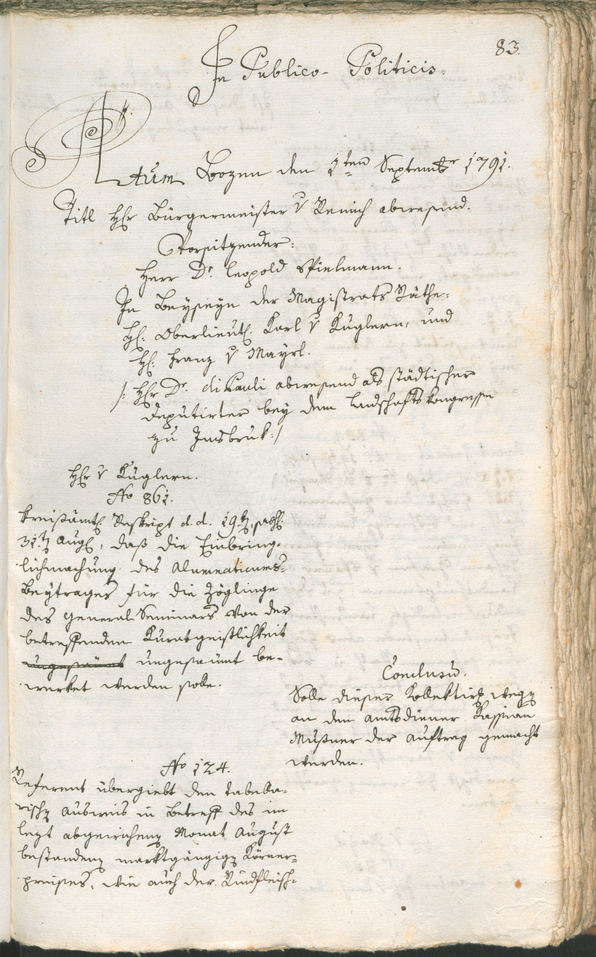 83.
In Publico-Politicis.
Actum Bozen den 1ten Septembr 1791.
Titl Hr Bürgermeister v Remich abwesend.
Vorsitzender:
Herr Dr Leopold Spielmann.
In Beyseyn der Magistrats Räthe:
H: Oberlieut: Karl v Kuglern, und
H: Franz v Mayrl.
/: Hr Dr. di Pauli abwesend als städtischer
Deputirter bey dem Landschaftskongresse
zu Insbruk :/
Hr v Kuglern.
No 861.
Kreisämtl Reskript d. d. 19t, pass:
31t Augl, daß die Einbring-
lichmachung des Alumnations-
Beytrages für die Zöglinge
des General Seminars von der
betreffenden Kuratgeistlichkeit
ungesäumt be-
werket werden solle.
Conclusu.
Solle dieser Kollektirg wegen
an den Amtsdiener Kassian
Mußner der Auftrag gemacht
werden.
No 124.
Referent übergiebt den tabella-
rischen Ausweis in Betreff des im
lezt abgewichenen Monat August
bestandenen marktgängigen Körner-
preises, wie auch der Rindfleisch-